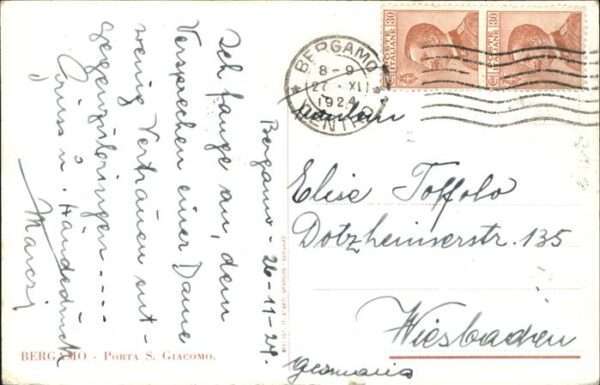 Bergamo - 26-11-24.
Ich fange an, dem
Versprechen einer Dame
wenig Vertrauen ent-
gegenzubringen ....
Gruss u. Händedruck
BERGAMO - PORTA S. GIACOMO.
BERGAMO
8-9
27 · XI
1924
CENTRO
POSTE ITALIANE
30
POSTE ITALIANE
30
Elise Toffolo
Dotzheimerstr. 135
Wiesbaden
Germania